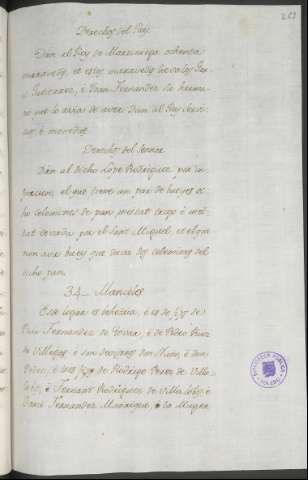 Derechos del Rey
Dan al Rey de Martiniega ochenta
maravedis, et estos maravedis lievalos
Gutierrez, è Dia Fernandez su herma-
no por lo avian de aver. Dan al Rey servi-
cios, è monedas.
Derechos del Señor
Dan al dicho Lope Rodriguez por in-
furcion, el que tiene un par de bueyes o-
cho celemines de pan mediat trigo è me-
tat cevada por el Sant Miguel, et el que
non ave buey que de dos celemines del
dicho pan.
34. Mancelos
Este logar es behetria, è es de fijos de
Dia Fernandez de è de Pedro Ruiz
de Villegas, è son devisares don Nuño, è don
Pedro, è los fijos de Rodrigo Perez de Villa-
lobos, è Fernant Rodriguez de Villalobos, è
Garci Fernandez Manrique, è la Muger
BIBLIOTECA PUBLICA
TOLEDO